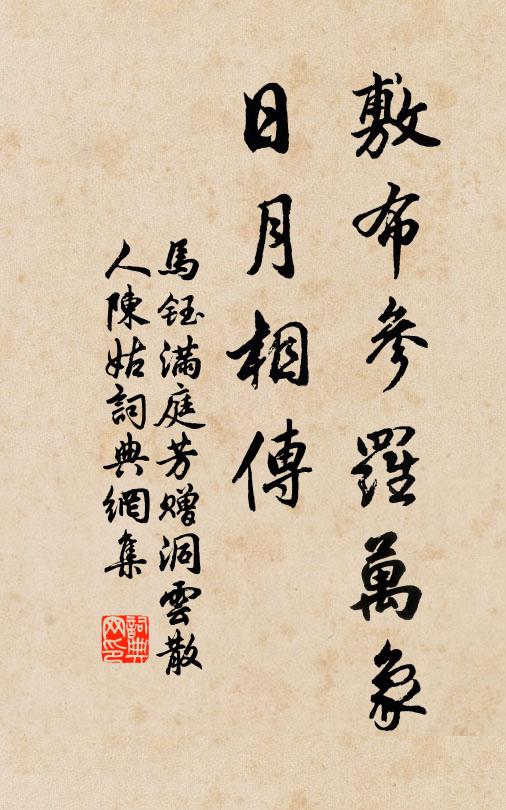 敷布參羅萬象
日月相傳
馬鈺滿庭芳贈洞雲散
人陳姑詞典網集
詞典网印